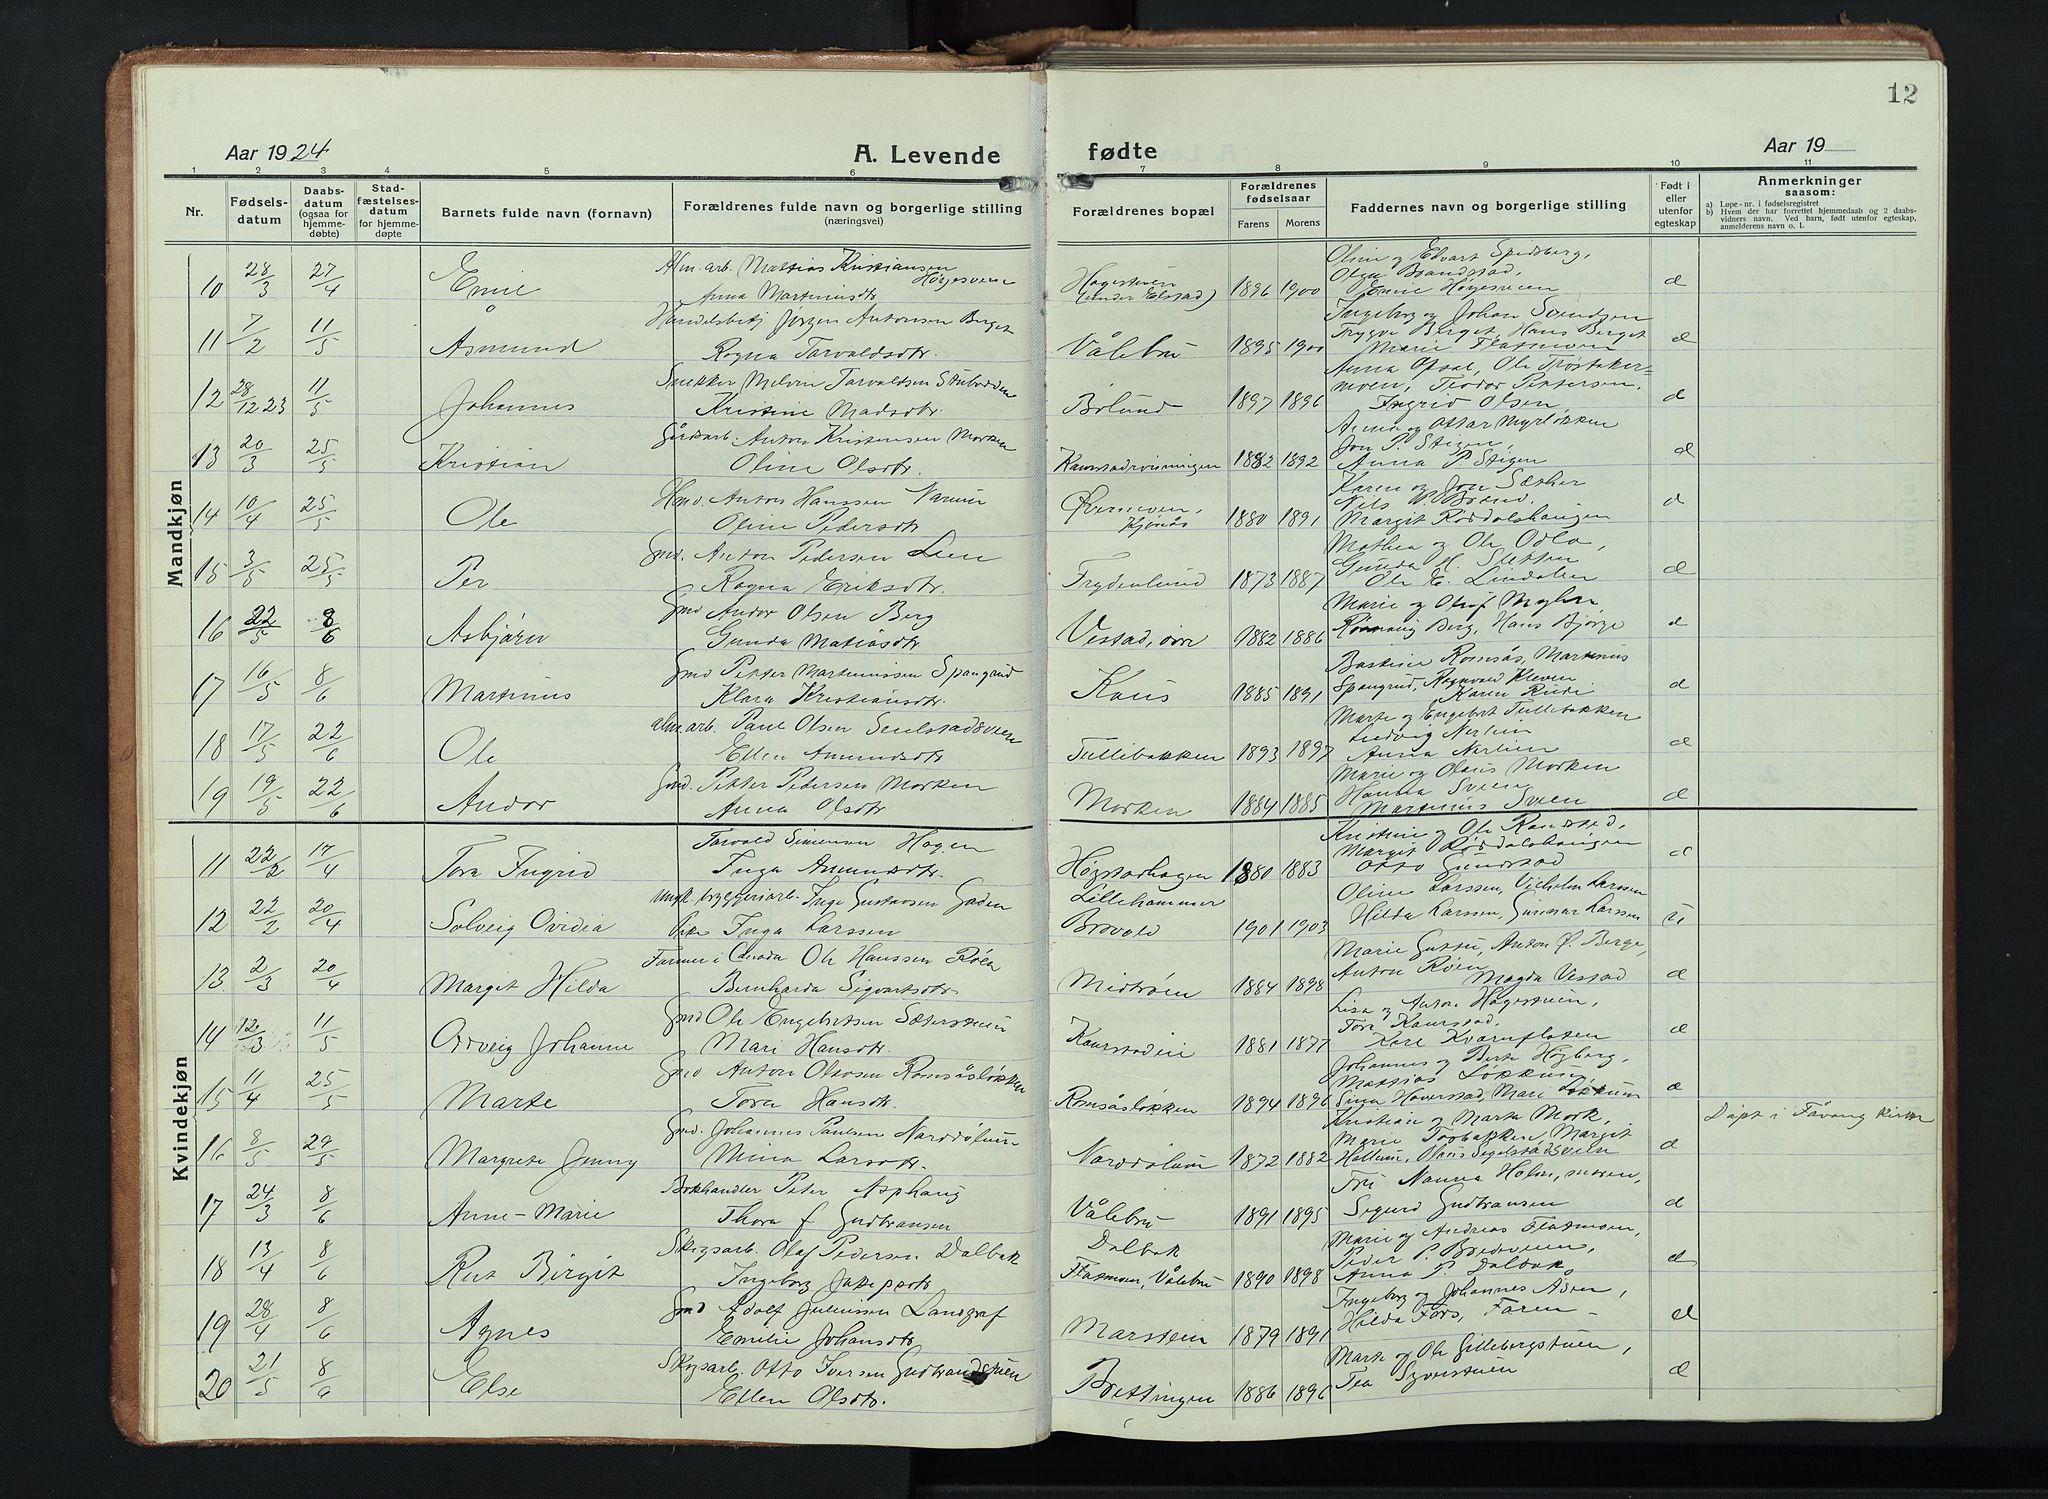 12
Aar 1924
A. Levende
fødte
Aar 19
1 2 3 4 5 6 7 8 9 10 11
Nr.
Fødselsdatum
Daabsdatum (ogsaa for hjemmedøbte)
Stadfæstelsesdatum for hjemmedøpte
Barnets fulde navn (fornavn)
Forældrenes fulde navn og borgerlige stilling (næringsvei)
Forældrenes bopæl
Forældrenes fødselsaar
Farens Morens
Faddernes navn og borgerlige stilling
Født i eller utenfor egteskap
Anmerkninger
saasom:
a) Løpe-nr. i fødselsregistret
b) Hvem der har forrettet hjemmedaab og 2 daabsvidners navn. Ved barn, født utenfor egteskap, anmelderens navn o. l.
Mandkjøn
Oline og Edvart Spedsberg,
Alm. arb. Mattias Kristiansen Høgesveen
Olga Brandstad,
10 28/3 27/4 Emil Anna Martinusdtr. Høgesteien (under Elstad) 1896 1900 Emil Høgesveen d
Handelsbetj Jørgen Antonsen Berget
Ingeborg og Johan Svendsen
Trygve Berget, Hans Berget
11 7/2 11/5 Åsmund Ragna Tarvaldsdtr. Vålebru 1895 1900 Marie Flatmoen d
Snekker Melvin Tarvaldsen Stubodden
Anna Opsal, Ole Trøstakermoen, Teodor Pettersen,
12 28/12 23 11/5 Johannes Kristine Madsdtr. Bølund 1897 1896 Ingrid Olsen d
Gårdsarb. Anton Kristensen Morken
Anna og Ottar Myrløkken
Jon P. Stigen,
13 20/3 25/5 Kristian Oline Olsdtr. Kamstadrvisningen 1882 1892 Anna P. Stigen d
Anton Hanssen
Karen og Jon Sæther
14 10/4 25/5 Ole Oline Pedersdtr. Øverveien, 1880 1891 Margit Røddalshaugen d
Gmd. Anton Pedersen Lien
Mathea og Ole Odla,
Gunda M. Sletten
15 3/5 25/5 Per Ragna Eriksdtr. Frydenlund 1873 1887 Ole E. Lindalen d
Gmd Andor Olsen Berg
Marie og Olaf Myhre,
16 22/5 8/6 Asbjørn Gunda Matiasdtr. Vestad, øvre 1882 1886 Rønnaug Berg, Hans Bjørge d
Gmd Petter Martinussen Spangrud
Bastine Romsås, Martinus
Spangrud, Ragnvald Kleven
17 16/5 8/6 Martinus Klara Kristiansdtr. Kaus 1885 1891 Karen Rudi d
alm. arb. Paul Olsen Seielstadsveen
Marte og Engebret Tullebakken
Ludvig Nerlien
18 17/5 22/6 Ole Ellen Amundsdtr. Tullebakken 1893 1897 Anna Nerlien d
Gmd. Petter Pedersen Morken
Marie og Olaus Morken
Hanna Sveen
19 19/5 22/6 Andor Anna Olsdtr. Morken 1884 1885 Martinus Sveen d
Kvindekjøn
Tarvald Simensen Hagen
Kristine og Ole Ranstad,
Margit Røddalshaugen
11 22/2 17/4 Tora Ingrid Inga Amundsdtr. Høistadhagen 1880 1883 Otto Gundstad d
Ungk. bryggeriarb. Inge Gustavsen Gaden
Lillehammer
Oline Larssen, Vilhelm Larssen
12 22/2 20/4 Solveig Ovidia Pike Inga Larssen Brovold 1901 1903 Hilda Larssen, Gunnar Larssen u
Farmer i Canada Ole Hanssen Røen
Marie Guttu, Anton Ø. Berge,
Anton Røen
13 2/3 20/4 Margit Hilda Bernharda Sigvartsdtr. Midtrøen 1884 1898 Magda Vestad d
Gmd Ole Engebretsen Sæterstuen
Lisa og Anton Høgestuen,
Tora Kamstad,
14 12/3 11/5 Oddveig Johanne Mari Hansdtr. Kamstadeie 1881 1877 Kari Kvarnflaten d
Gmd Anton Olavsen Romsåsløkken
Johannes og Berte Høgberg,
Mattias Løkkum
15 11/4 25/5 Marte Tora Hansdtr. Romsåsløkken 1894 1896 Sina Haverstad, Mari Løkkum d
Gmd. Johannes Paulsen Norddølum
Kristian og Marta Mork,
Marie Torbakken, Margit
16 8/5 29/5 Margrete Jenny Mina Larsdtr. Norddølum 1872 1882 Hallum, Olaus Segelstadsveen d Døpt i Fåvang kirke
Bokhandler Peter Asphaug
Fru Nanna Holm, Moren,
17 24/3 8/6 Anne-Marie Thora f. Gudbransen Vålebru 1891 1895 Sigurd Gudbransen d
Skogsarb. Olaf Pedersen Dalbak
Dalbak
Marie og Andreas Flatmoen,
Peder P. Bredeveen,
18 13/4 8/6 Rut Birgit Ingeborg Jakopsdtr. Flatmoen, Vålebru 1890 1898 Anna P. Dalbak d
Gmd Adolf Juliussen Landgraf
Ingeborg og Johannes Aaen,
19 28/4 8/6 Agnes Emilie Johansdtr. Marstein 1879 1891 Hilda Fors, Faren d
Skogsarb. Otto Iversen Gudbrandstuen
Marte og Ole Gillebergstuen,
20 21/5 8/6 Else Ellen Olsdtr. Brettingen 1886 1896 Tea d